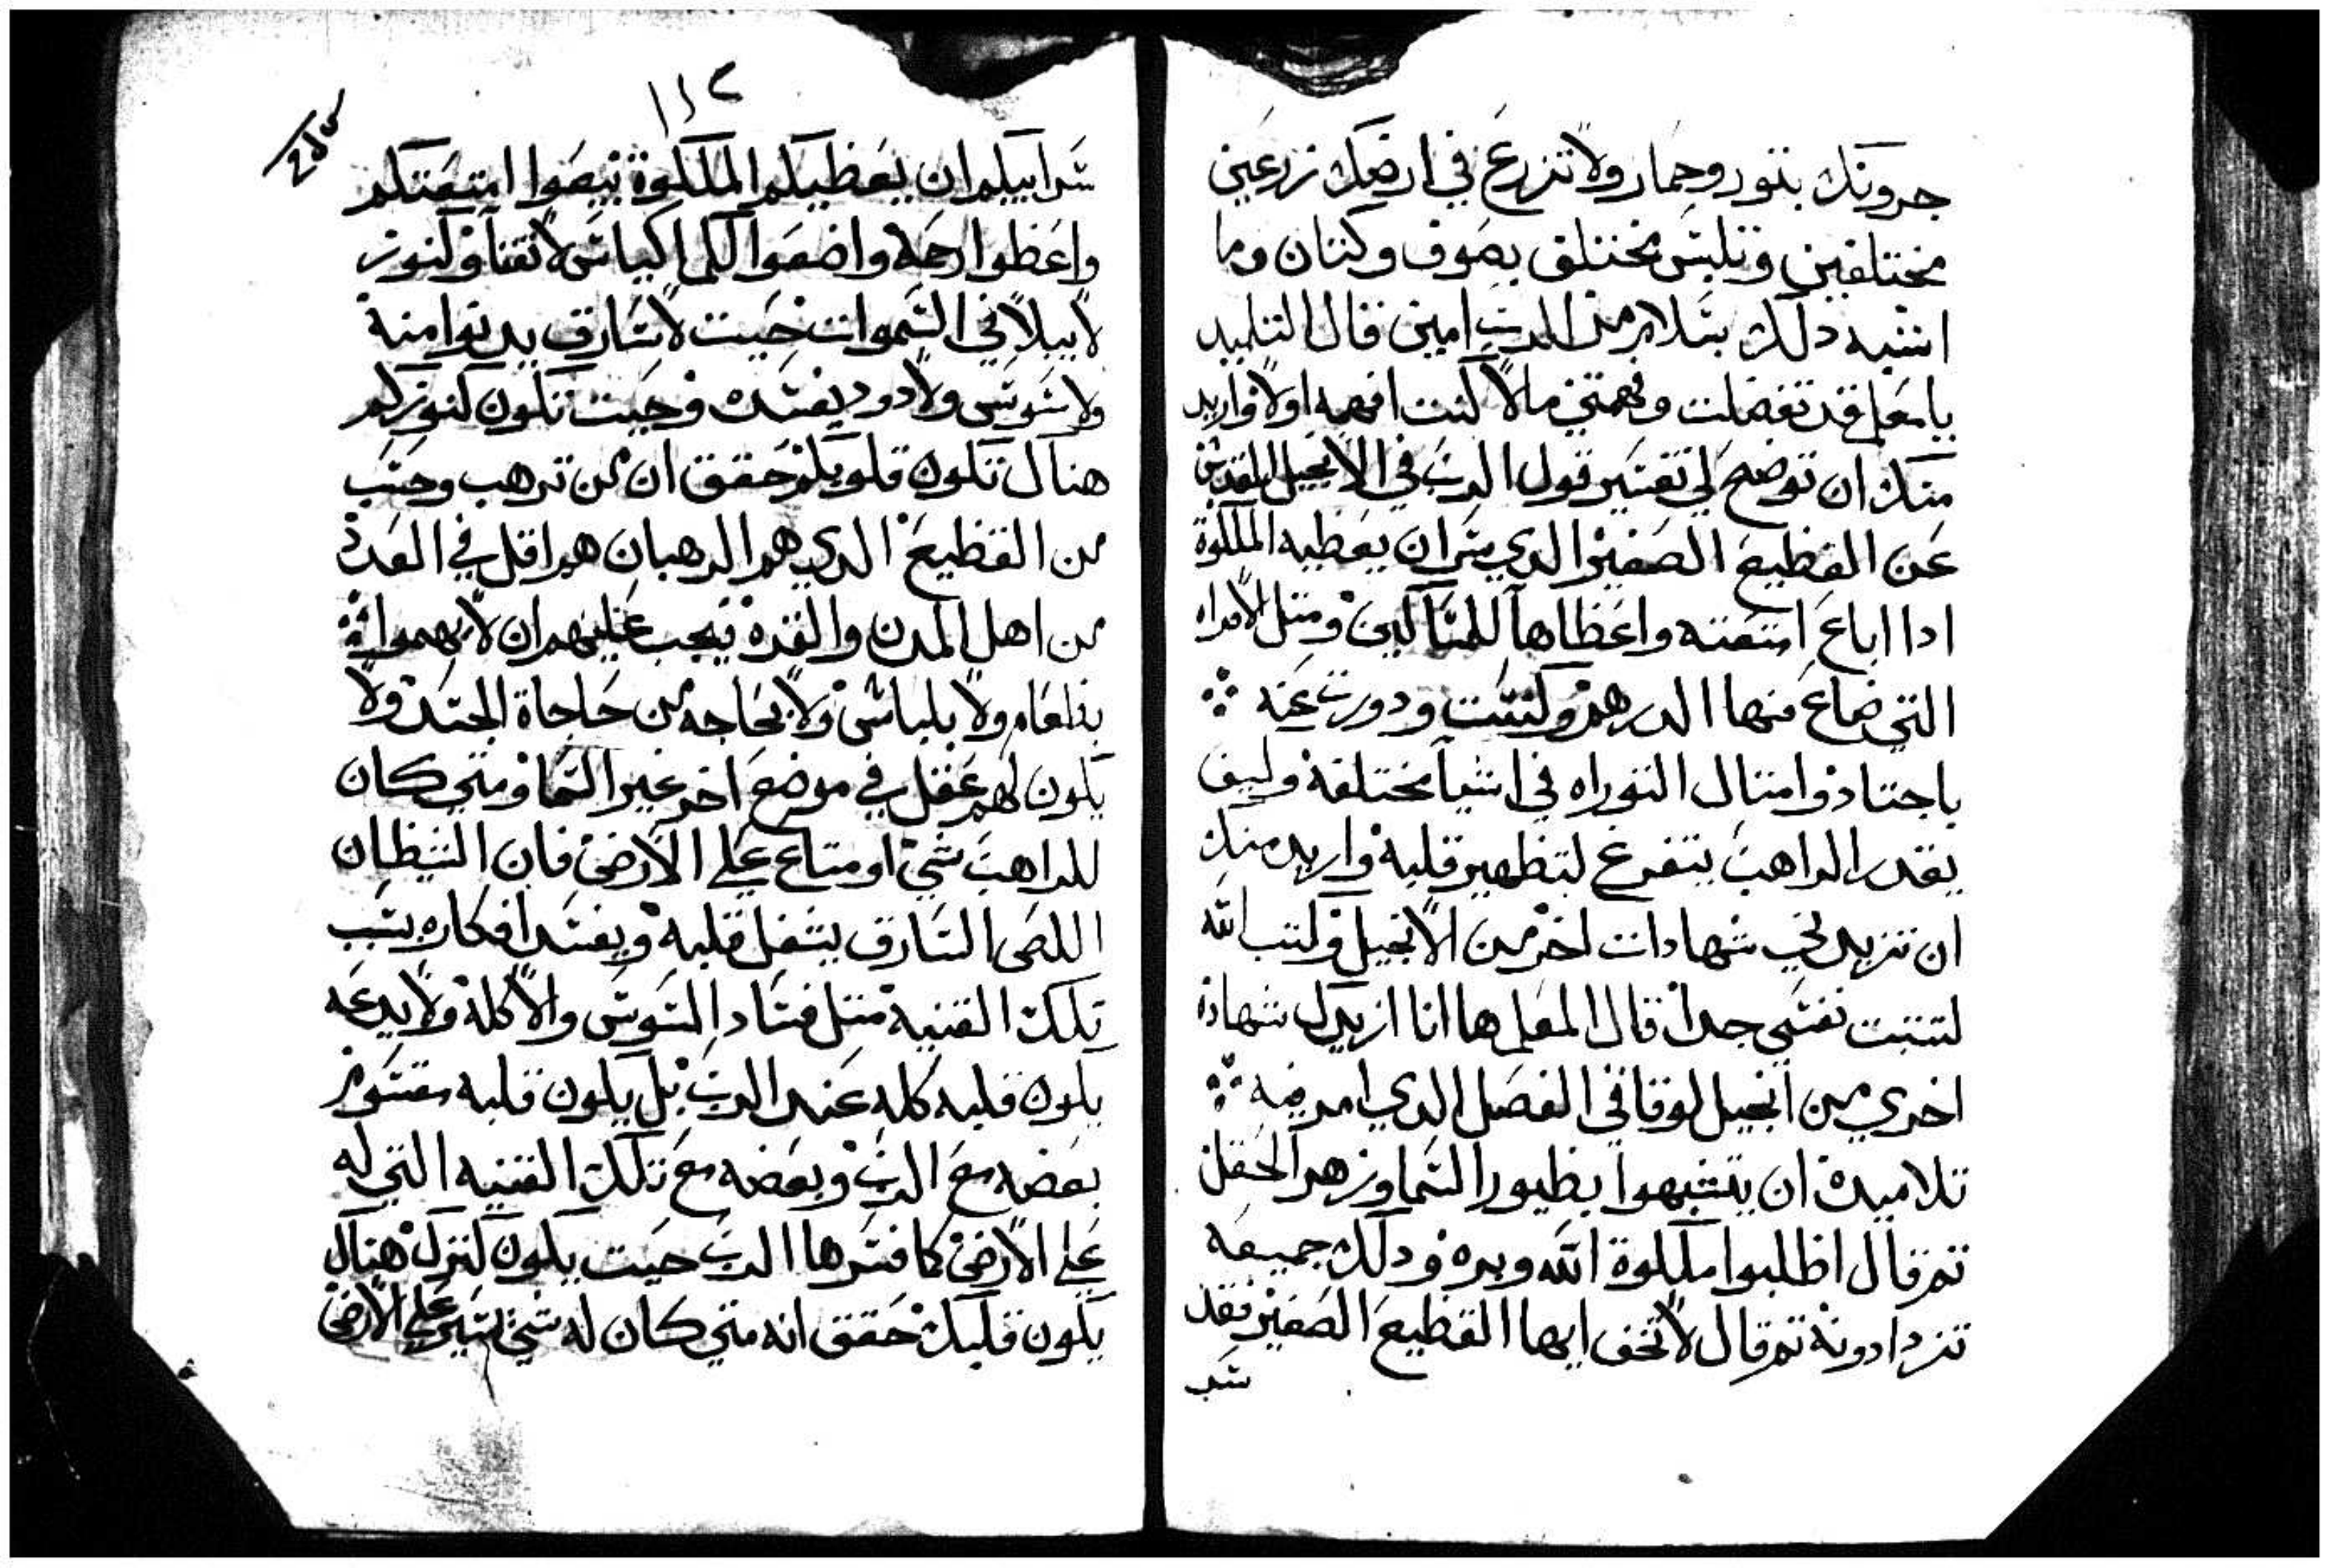 جرونك بتور وحمار ولا تزرع في ارضك زرعين
مختلفين وتلبس مختلق بصوف وكتان وما
اشبه دلك بسلام من الرب امين قال التلميد
يا معلم قد تفضلت وفهمتني مالا كنت افهمه اولا واريد
منك ان توضح لي تفسير قول الرب في الانجيل المقدس
عن القطيع الصغير الدي سر ان يعطيه الملكوة
ادا اباع امتعته واعطاها للمساكين ومتل الامراه
التي ضاع منها الدرهم وكنست ودورت عنه
باجتهاد وامتال التوراه في اشيا مختلفة وكيف
يقدر الراهب يتفرغ لتطهير قلبه واريد منك
ان تزيدني شهادات اخر من الانجيل وكتب الله
لتتبت نفسي جدا قال المعلم ها انا ازيدك شهادة
اخري من انجيل لوقا في الفصل الدي امر فيه
تلاميده ان يتشبهوا بطيور السما وزهر الحقل
تم قال اطلبوا ملكوة الله وبره ودلك جميعه
تزدادونه تم قال لا تخف ايها القطيع الصغير فقد
سر
١١٢
شر ابيكم ان يعطيكم الملكوة بيعوا امتعتكم
واعطوا رحمة واضعوا لكم اكياس لا تفنا وكنوز
لا يبلا في السموات حيت لا سارق يدنوا منه
ولا سوس ولا دود يفسده وحيت تكون كنوزكم
هناك تكون قلوبكم حقق ان من ترهب وحسب
من القطيع الدي هم الرهبان هم اقل في العدد
من اهل المدن والقره فيجب عليهم ان لا يهموا
بطعام ولا بلباس ولا بحاجه من حاجاة الجسد ولا
يكون لهم عقل في موضع اخر غير السما ومتي كان
للراهب شي او متاع علي الارض فان الشيطان
اللص السارق يشغل قلبه ويفسد افكاره بسبب
تلك القنية متل فساد السوس والاكلة ولا يدعه
يكون قلبه كله عند الرب بل يكون قلبه مقسوم
بعضه مع الرب وبعضه مع تلك القنيه التي له
علي الارض كما فسرها الرب حيت يكون كنزك هناك
يكون قلبك حقق انه متي كان له شي يسير علي الارض